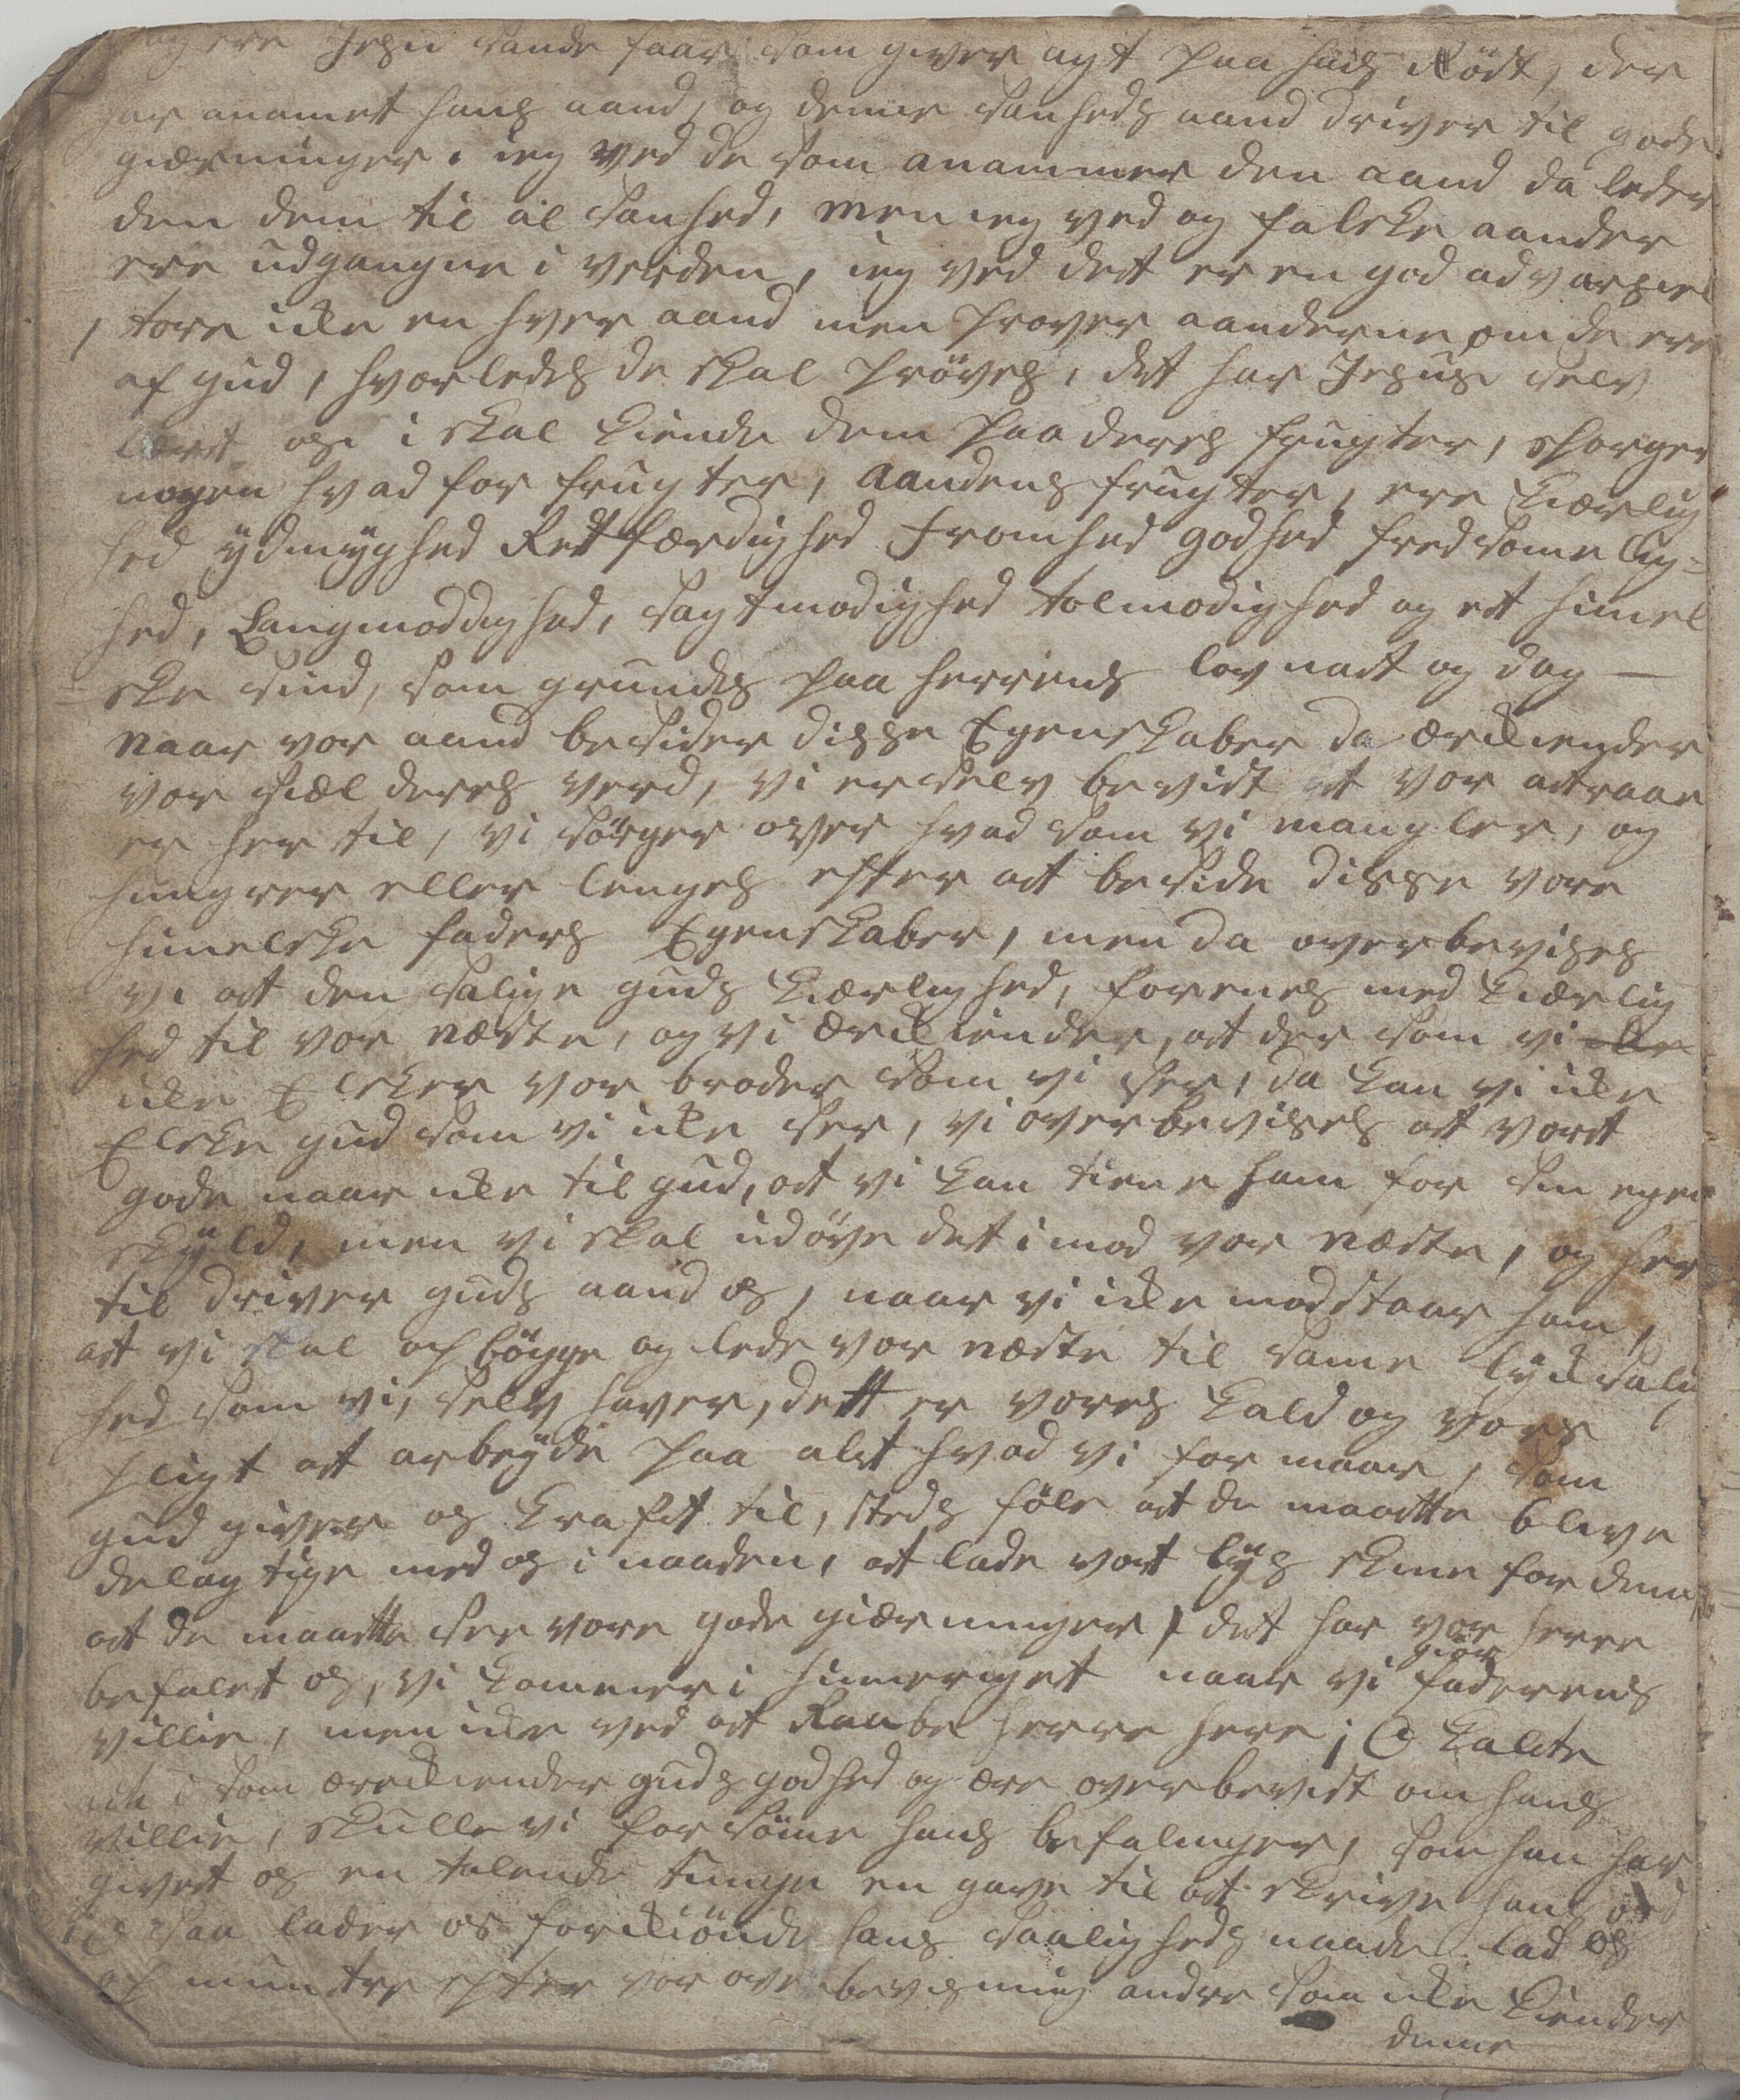 og ere Jesu sande faar som giver agt paa hans Röst, der
har anamet hans aand, og denne sanheds aand driver til gode
giærninger, ieg ved de som anammer den aand da leder
den dem til al sanhed, men ieg ved og falske aander
ere udgangne i verden, ieg ved det er en god advarsel
, tore icke en hver aand men prover aanderne om de ere
af gud, hvorledes de skal pröves, det har Jesus selv
lært os i skal kiende dem paa deres frugter, sporger
nogen hvad for frugter, aandens frugter, ere kiærlig
hed ÿdmÿghed Rettfærdighed fromhed godhed fredsomelig=
hed, Langmoddighed, sagtmodighed tolmodighed og et himel
ske sind, som grundes paa herrens lov nat og dag —
naar vor aand besider disse Egenskaber da ærkiender
vor siæl deres verd, vi er selv bevist at vor attraa
er her til, vi sörger over hvad som vi mangler, og
hungrer eller lenges efter at beside disse vore
himelske faders Egenskaber, men da overbevises
vi at den salige guds kiærlighed, forenes med kiærlig
hed til vor næste, og vi ærkiender, at der som vi
icke Elsker vor broder som vi ser, da kan vi icke
Elske gud som vi icke ser, vi overbevises at vort
gode naar icke til gud, at vi kan tiene ham for sin egen
skÿld, men vi skal udöve det imod vor næste, og her
til driver guds aand os, naar vi icke modstaar ham,
at vi skal opbögge og lede vor næste til same lycksalig
hed som vi, selv haver, dett er vores kald og vores
pligt at arbeÿde paa alt hvad vi for maar, som
gud giver os kraft til, steds föle at de maatte blive
delagtige med os i naaden, at lade vort lÿs skine for dem
at de maatte see vore gode giærninger, det har vor herre
befalet os, vi kommer i himeriget naar vi giör faderens
villie, men icke ved at Raabe herre herre; O kalte
som ærckiender guds godhed og ere overbevist om hans
villie, skulle vi forsöme hans befalinger, som han har
givet os en talende tunge en gave til at skrive hans ord
saa lader os forkiönde hans saalighedz naade lad os
op muntre efter vor overbevisning andre som icke kiender
denne